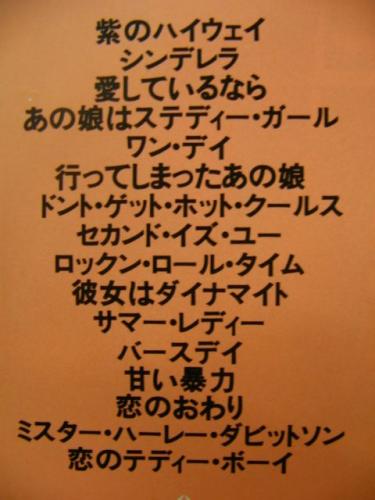 紫のハイウェイ
シンデレラ
愛しているなら
あの娘はステディー・ガール
ワン・デイ
行ってしまったあの娘
ドント・ゲット・ホット・クールス
セカンド・イズ・ユー
ロックン・ロール・タイム
彼女はダイナマイト
サマー・レディー
バースデイ
甘い暴力
恋のおわり
ミスター・ハーレー・ダビットソン
恋のテディー・ボーイ